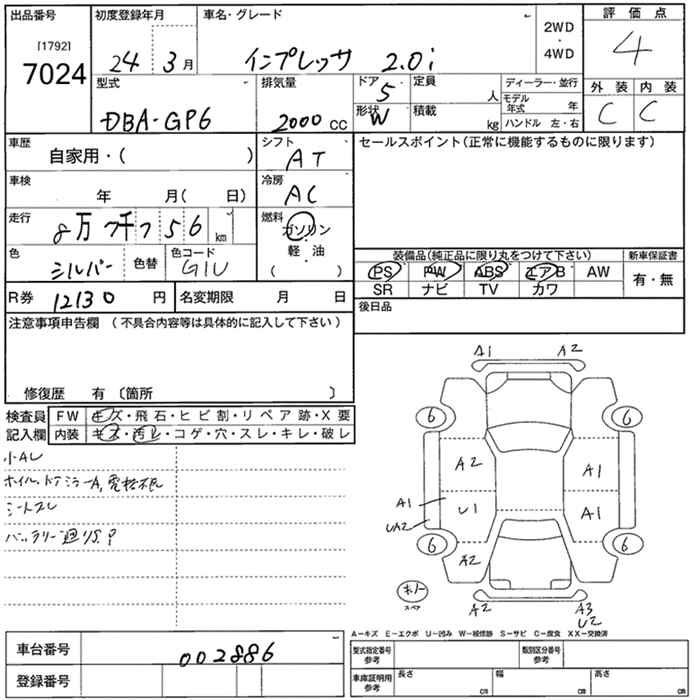 出品番号 初度登録年月 車名・グレード 2WD・4WD 評価点
[1792]
7024 24 3月 インプレッサ 2.0i 4
型式 排気量 ドア 定員 ディーラー・並行 外装 内装
DBA-GP6 2000cc 5 人 モデル年式 年 C C
形状 W 積載 kg ハンドル 左・右
車歴 自家用・( ) シフト AT セールスポイント(正常に機能するものに限ります)
車検 年 月( 日) 冷房 AC
走行 8万7千756km 燃料 ガソリン・軽油( )
色 シルバー 色替 色コード G1U
装備品(純品に限り丸をつけて下さい) 新車保証書
PS PW ABS エアB AW 有・無
SR ナビ TV カワ
R券 12130円 名変期限 月 日 後日品
注意事項申告欄(不具合内容等は具体的に記入して下さい)
修復歴 有〔箇所 〕
検査員記入欄 FW キズ・飛石・ヒビ割・リペア跡・X要
内装 キズ・汚レ・コゲ・穴・スレ・キレ・破レ
小AU
ホイル、ドアミラーA,
シートスレ
バッテリー
A1 A2
6 6
A2 A1
A1 U1 A1
UA2
6 6
A2
スペア
A2 A3
U2
A―キズ E―エクボ U―凹み W―補修跡 S―サビ C―腐食 XX―交換済
車台番号 002886
登録番号
型式指定番号 参考 類別区分番号 参考
車庫証明用 参考 長さ cm 幅 cm 高さ cm